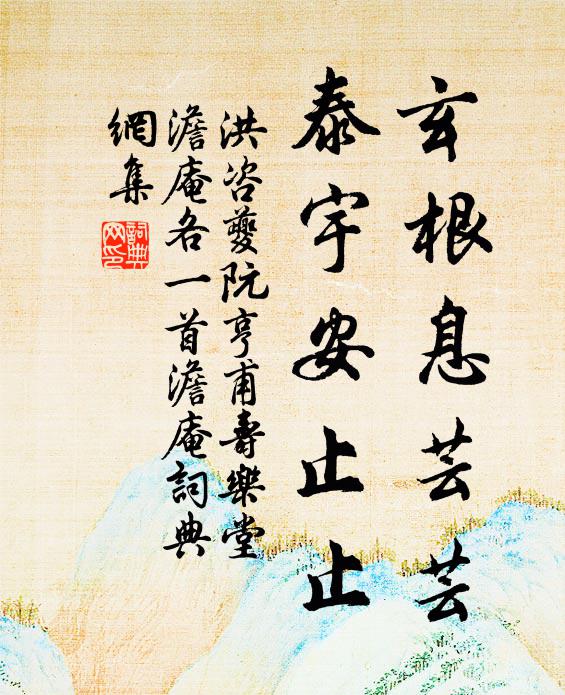 玄根息芸芸
泰宇安止止
洪咨夔阮亨甫壽樂堂
澹庵各一首澹庵詞典
網集
詞典
网印